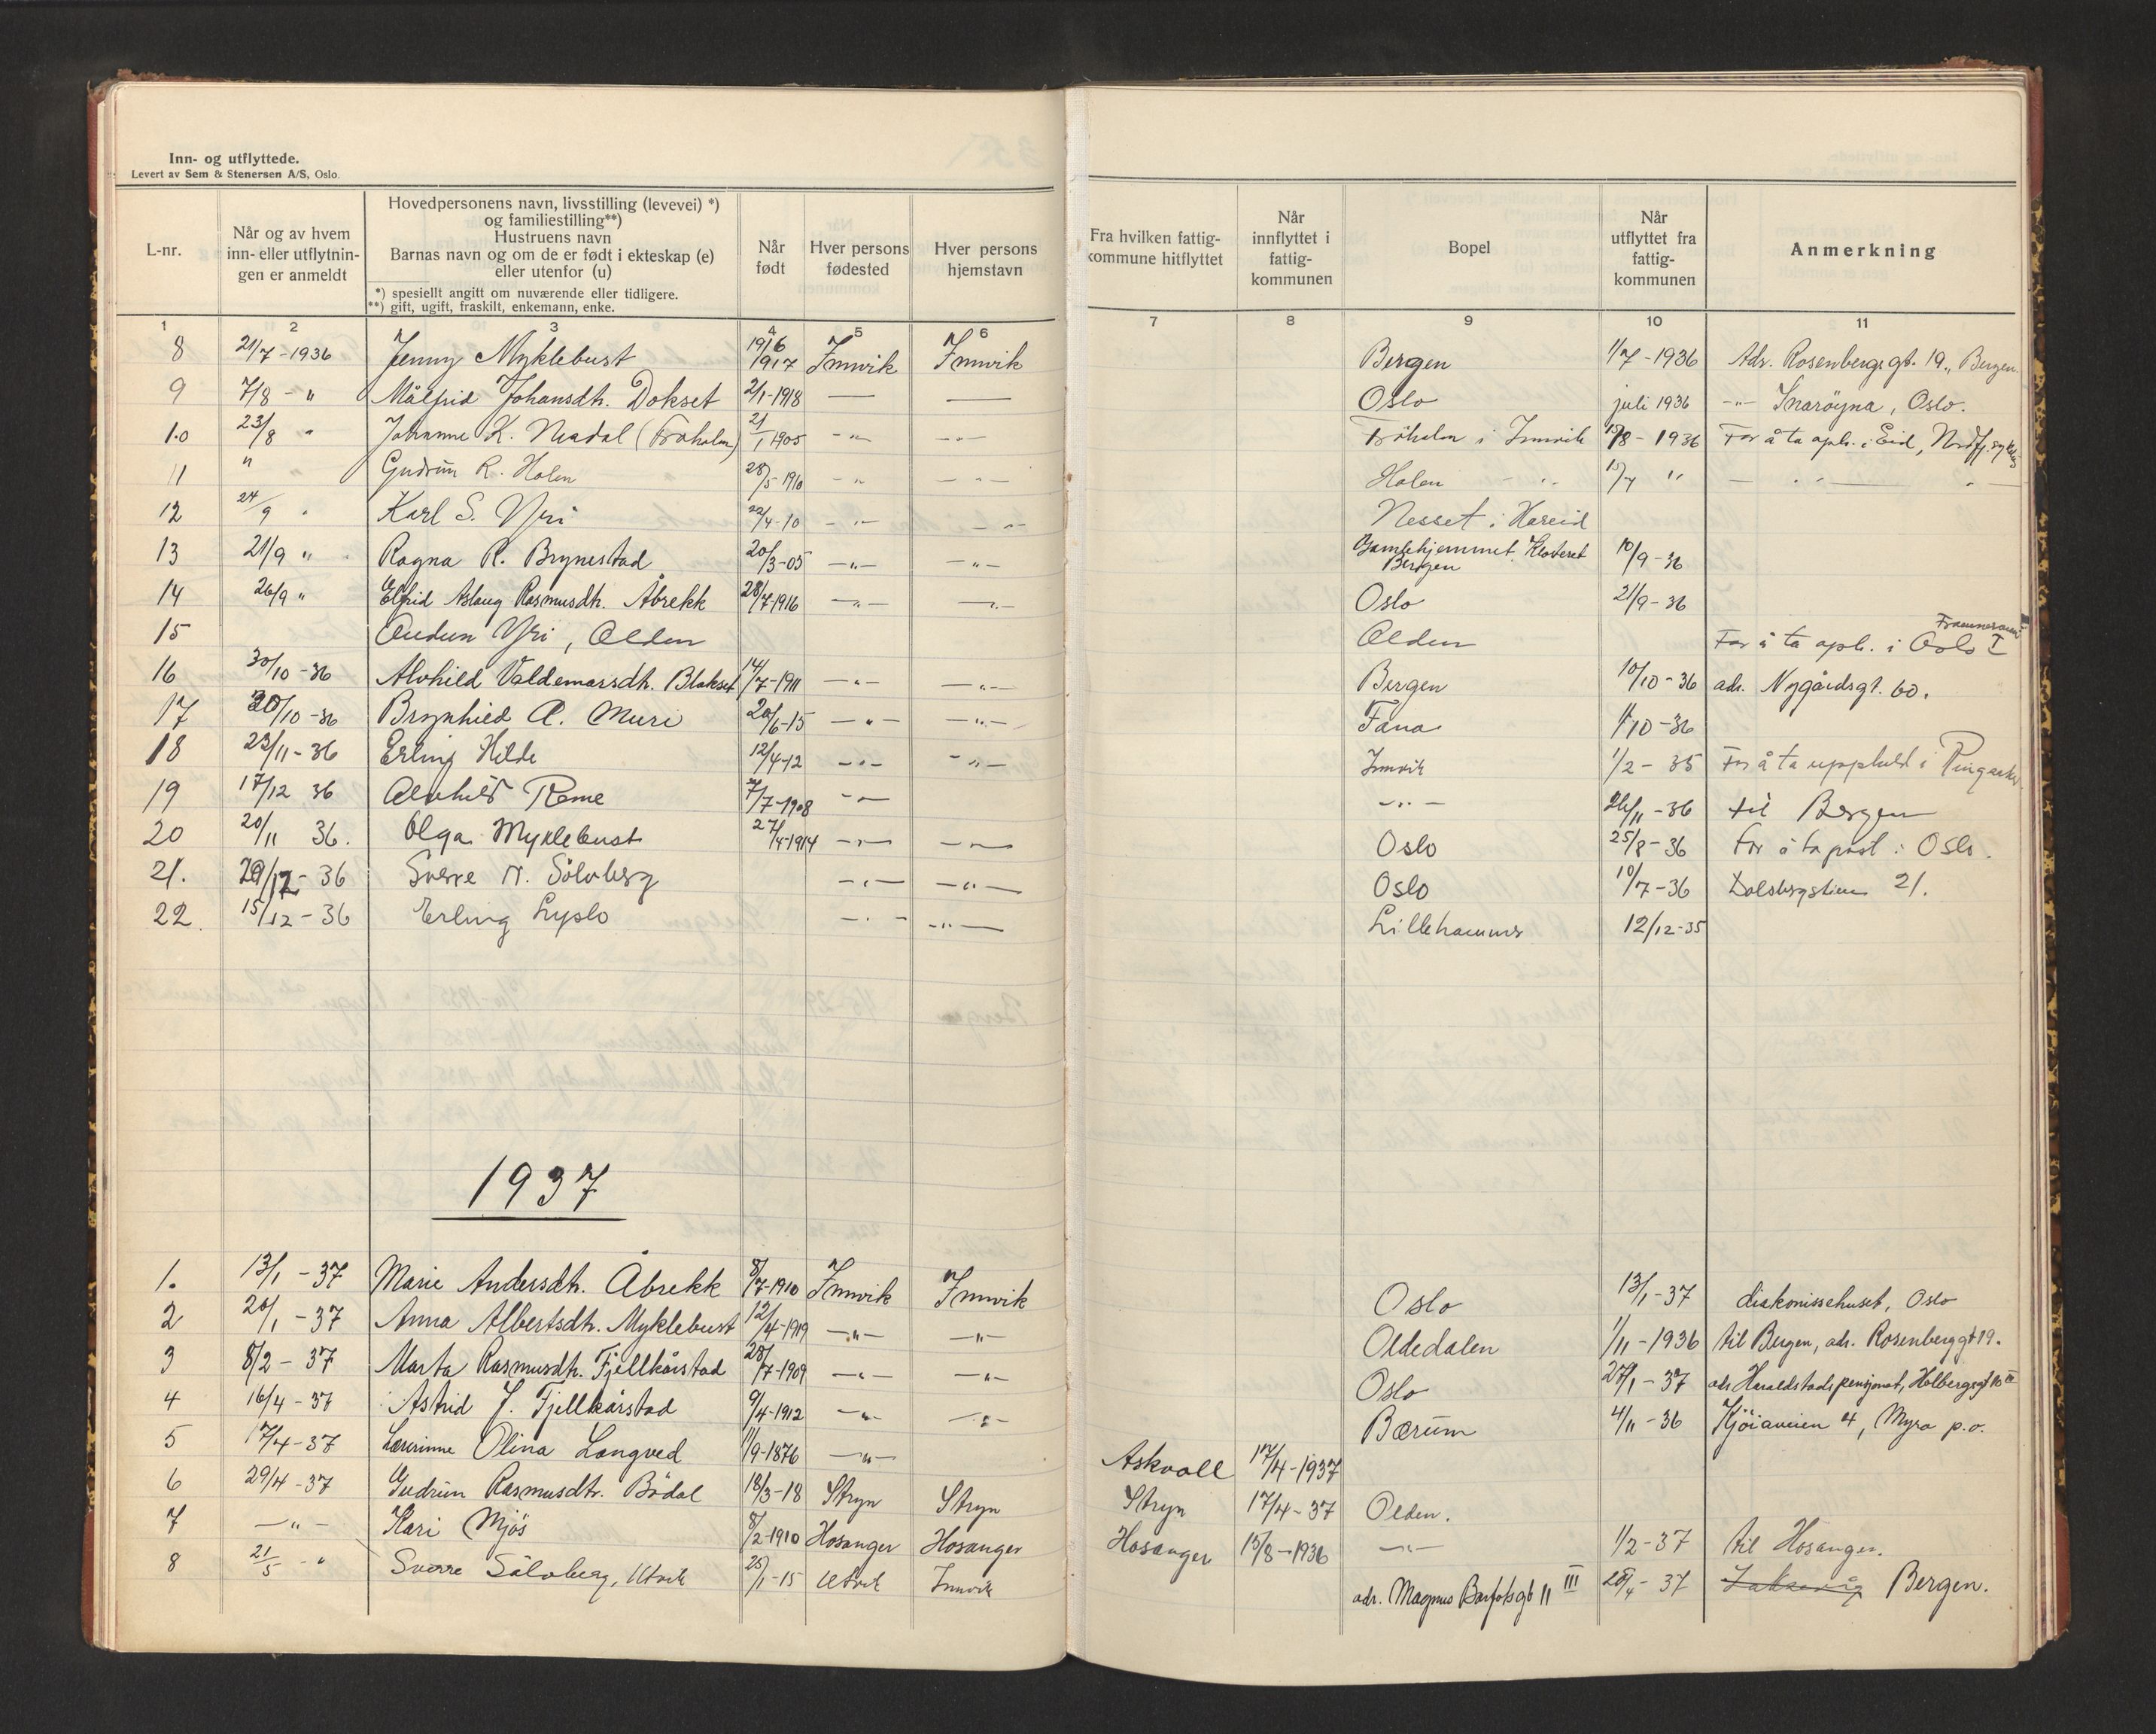 Inn- og utflyttede.
Levert av Sem & Stenersen A/S, Oslo.
L-nr. | Når og av hvem inn- eller utflytnin-gen er anmeldt | Hovedpersonens navn, livsstilling (levevei) *) og familiestilling**) Hustruens navn Barnas navn og om de er født i ekteskap (e) eller utenfor (u) *) spesiellt angitt om nuværende eller tidligere. **) gift, ugift, fraskilt, enkemann, enke. | Når født | Hver persons fødested | Hver persons hjemstavn | Fra hvilken fattig-kommune hitflyttet | Når innflyttet i fattig-kommunen | Bopel | Når utflyttet fra fattig-kommunen | Anmerkning
1 2 3 4 5 6 7 8 9 10 11
8 21/7-1936 Jenny Myklebust 19/6 1917 Innvik Innvik Bergen 1/7-1936 Adr. Rosenbergsgt. 19., Bergen.
9 7/8 - " Målfrid Johansdtr. Dokset 2/1-1918 — — Oslo juli 1936 -"- Snarøyna, Oslo.
10 23/8 " Johanne K. Neadal 21/1 1905 -"- -"- i Innvik 15/8-1936 For å ta oph. i Eid,
11 " " Gudrun R. Holen 28/5-1910 -"- -"- Holen -"- 15/7 "
12 24/9 " Karl S. Yri 22/4-10 -"- -"- Nesset i Hareid
13 21/9 " Ragna R. Brynestad 20/3-05 -"- -"- Gamlehjemmet Klosteret Bergen 10/9-36
14 26/9 " Elfrid Aslaug Rasmusdtr. Åbrekk 28/7-1916 -"- -"- Oslo 21/9-36
15 Audun Yri, Olden Olden For å ta oph. i Oslo I
16 30/10-36 Alvhild Valdemarsdtr. Blakset 14/7-1911 -"- -"- Bergen 10/10-36 adr. Nygårdsgt. 60.
17 30/10-36 Brynhild A. Muri 20/6-15 -"- -"- Fana 1/10-36
18 23/11-36 Erling Hilde 12/4-12 -"- -"- Innvik 1/2-35 For å ta upphold i
19 17/12 36 Alvhild Reme 7/7-1908 -"- -"- 26/11-36 til Bergen
20 20/11 36. Olga Myklebust 27/4-1914 -"- -"- Oslo 25/8-36 For å ta post i Oslo.
21. 29/12-36 Sverre N. Sölvberg -"- -"- Oslo 10/7-36 21.
22. 15/12-36 Erling Lyslo -"- -"- Lillehammer 12/12-35
1937
1. 13/1-37 Marie Andersdtr. Åbrekk 8/7-1910 Innvik Innvik Oslo 13/1-37 diakonissehuset, Oslo
2 20/1-37 Anna Albertsdtr. Myklebust 12/4-1919 -"- -"- Oldedalen 1/11-1936 til Bergen, adr. Rosenberggt 19.
3 8/2-37 Marta Rasmusdtr. Fjellkårstad 28/7-1909 -"- -"- Oslo 27/1-37 adr. Haraldstads pensjonat, Holbergsgt
4 16/4-37 Astrid J. Fjellkårstad 9/4-1912 -"- -"- Bærum 4/11-36 4, Myra p.o.
5 17/4-37 Lærerinne Olina Langved 1/9-1876 -"- Askvoll 17/4-1937
6 29/4-37 Gudrun Rasmusdtr. Bödal 18/3-18 Stryn Stryn Stryn 17/4-37 Olden.
7 -"- Kari Mjös 8/2-1910 Hosanger Hosanger Hosanger 15/8-1936 -"- 1/2-37 til Hosanger.
8 21/5 -" Sverre Sölvberg, Utvik 25/1-15 Utvik Innvik adr. Magnus Barfotsgt 11 III 28/4-37 Bergen.